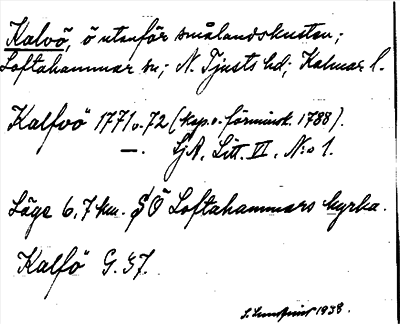 Kalvö, ö utanför smålandskusten;
Loftahammar sn; N. Tjusts hd; Kalmar l.
Kalfvö 1771 o. 72 (kop. o. förminsk. 1788).
—. SjA, Litt. VI, N:o 1.
Läge 6,7 km. SÖ Loftahammars kyrka.
Kalfö G. 37.
S. 1938.